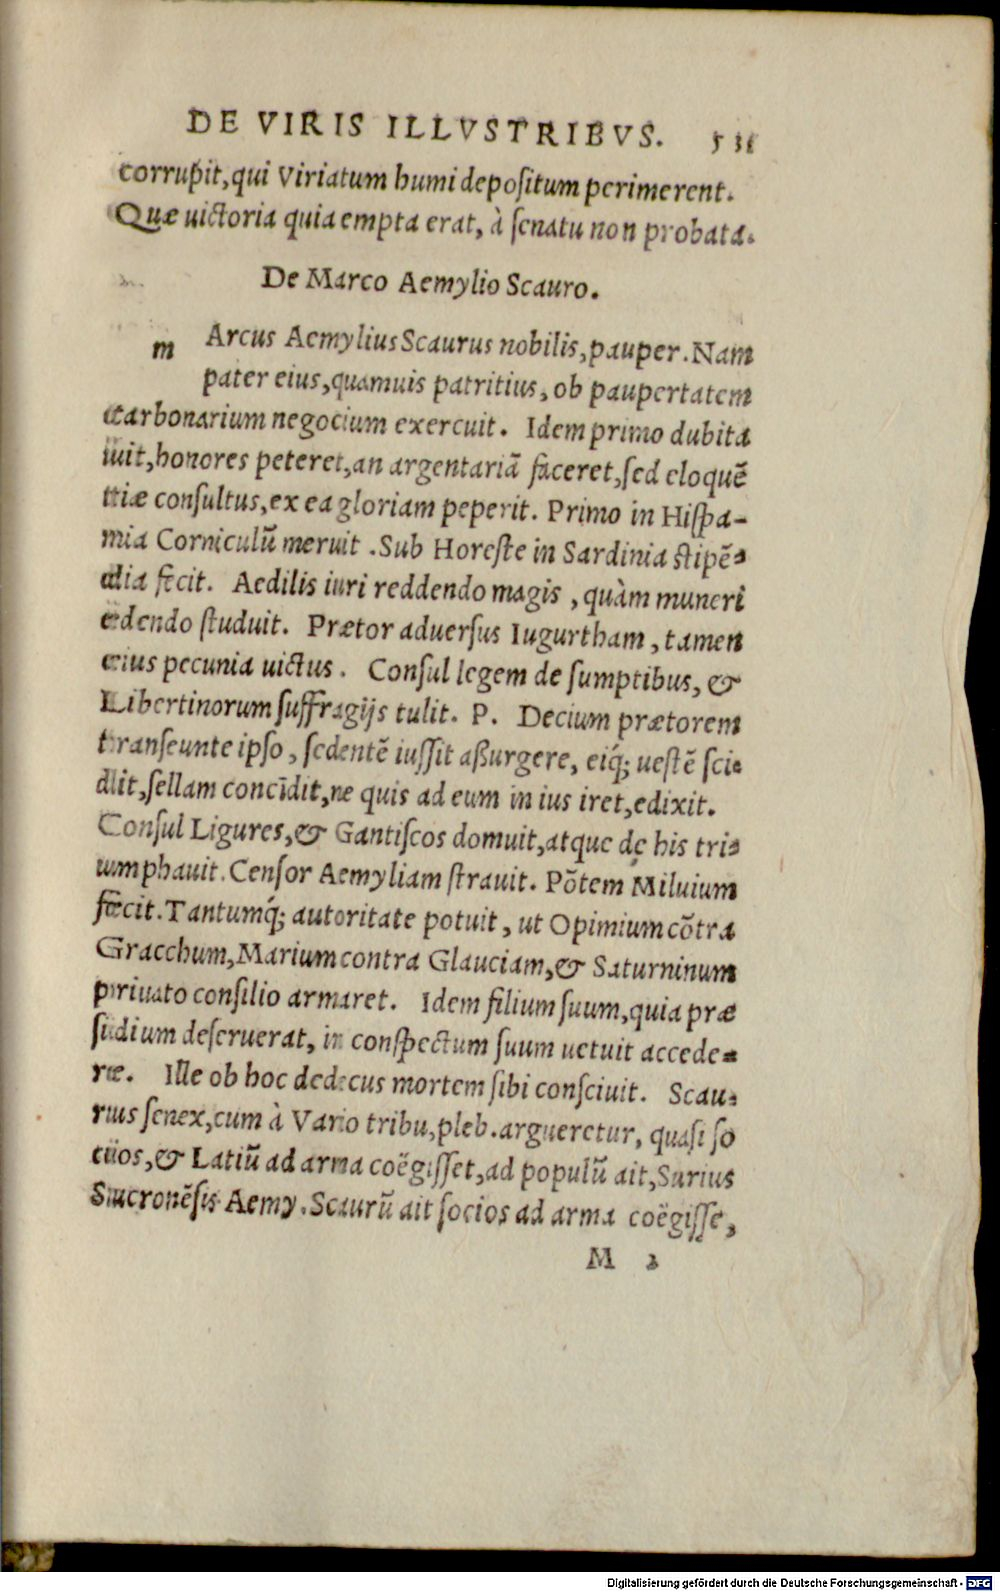 DE VIRIS ILLVSTRIBVS. 531
corrupit, qui Viriatum humi depositum perimerent.
Quæ uictoria quia empta erat, à senatu non probata.
De Marco Aemylio Scauro.
m Arcus Aemylius Scaurus nobilis, pauper. Nam
pater eius, quamuis patritius, ob paupertatem
carbonarium negocium exercuit. Idem primo dubita
uit, honores peteret, an argentariã faceret, sed eloquẽ
tiæ consultus, ex ea gloriam peperit. Primo in Hispa-
nia Corniculũ meruit. Sub Horeste in Sardinia stipẽ-
dia fecit. Aedilis iuri reddendo magis, quàm muneri
edendo studuit. Prætor aduersus Iugurtham, tamen
eius pecunia uictus. Consul legem de sumptibus, &
Libertinorum suffragijs tulit. P. Decium prætorem
transeunte ipso, sedentẽ iussit aßurgere, eiq́; uestẽ sci-
dit, sellam concĩdit, ne quis ad eum in ius iret, edixit.
Consul Ligures, & Gantiscos domuit, atque de his tri-
umphauit. Censor Aemyliam strauit. Põtem Miluium
fecit. Tantumq́; autoritate potuit, ut Opimium cõtra
Gracchum, Marium contra Glauciam, & Saturninum
priuato consilio armaret. Idem filium suum, quia præ
sidium deseruerat, in conspectum suum uetuit accede-
re. Ille ob hoc dedecus mortem sibi consciuit. Scau-
rus senex, cum à Vario tribu, pleb. argueretur, quasi so
cios, & Latiũ ad arma coëgisset, ad populũ ait, Surius
Sucronẽsis Aemy. Scaurũ ait socios ad arma coëgisse,
M 2
Digitalisierung gefördert durch die Deutsche Forschungsgemeinschaft - DFG